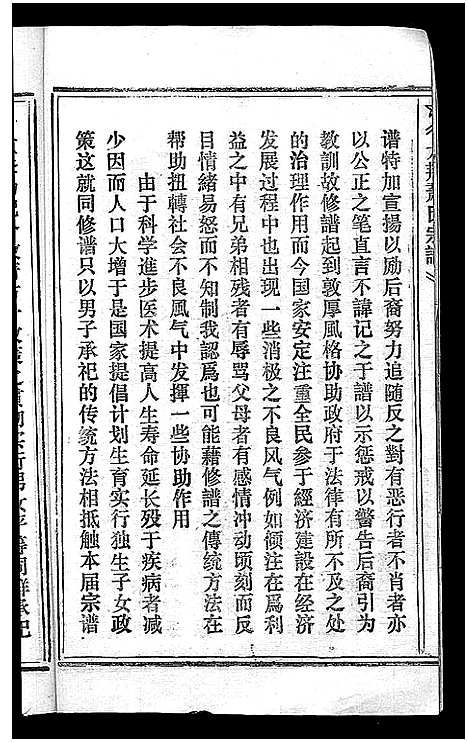 谱特加宣揚以励后裔努力追随反之對有恶行者不肖者亦
以公正之笔直言不諱记之于譜以示惩戒以警告后裔引为
教訓故修谱起到敦厚風格协助政府于法律有所不及之处
的治理作用而今国家安定注重全民参于經济建設在经济
发展过程中也出现一些消极之不良风气例如倾注在爲利
益之中有兄弟相残者有辱骂父母者有感情冲动顷刻而反
目情绪易怒而不知制我認爲也可能藉修譜之傳统方法在
帮助扭轉社会不良風气中发揮一些协助作用
由于科学進步医术提高人生寿命延长殁于疾病者减
少因而人口大增于是国家提倡计划生育实行独生子女政
策这就同修谱只以男子承祀的传统方法相抵触本届宗谱